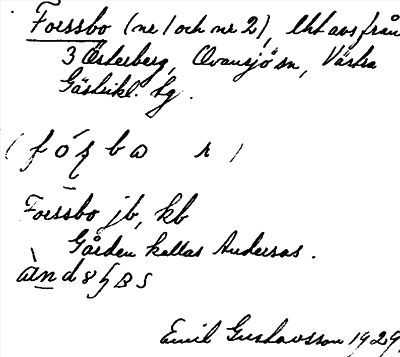 Forssbo (nr 1 och nr 2), lht avs från
3 Österberg, Ovansjö sn, Västra
Gästrikl. tg.
Forssbo jb, kb
Gården kallas Andersas.
Emil Gustavsson 1929.